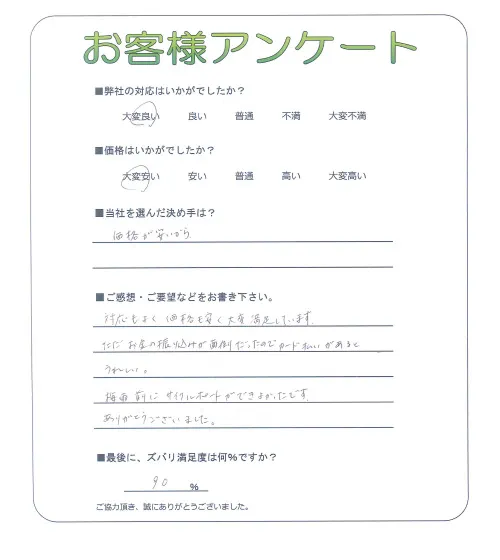 お客様アンケート
■弊社の対応はいかがでしたか？
大変良い 良い 普通 不満 大変不満
■価格はいかがでしたか？
大変安い 安い 普通 高い 大変高い
■当社を選んだ決め手は？
価格が安いから
■ご感想・ご要望などをお書き下さい。
対応もよく価格も安く大変満足しています。
ただお金の振り込みが面倒だったのでカード払いがあると
うれしい。
梅雨前にサイクルポートができよかったです。
ありがとうございました。
■最後に、ズバリ満足度は何％ですか？
90 ％
ご協力頂き、誠にありがとうございました。